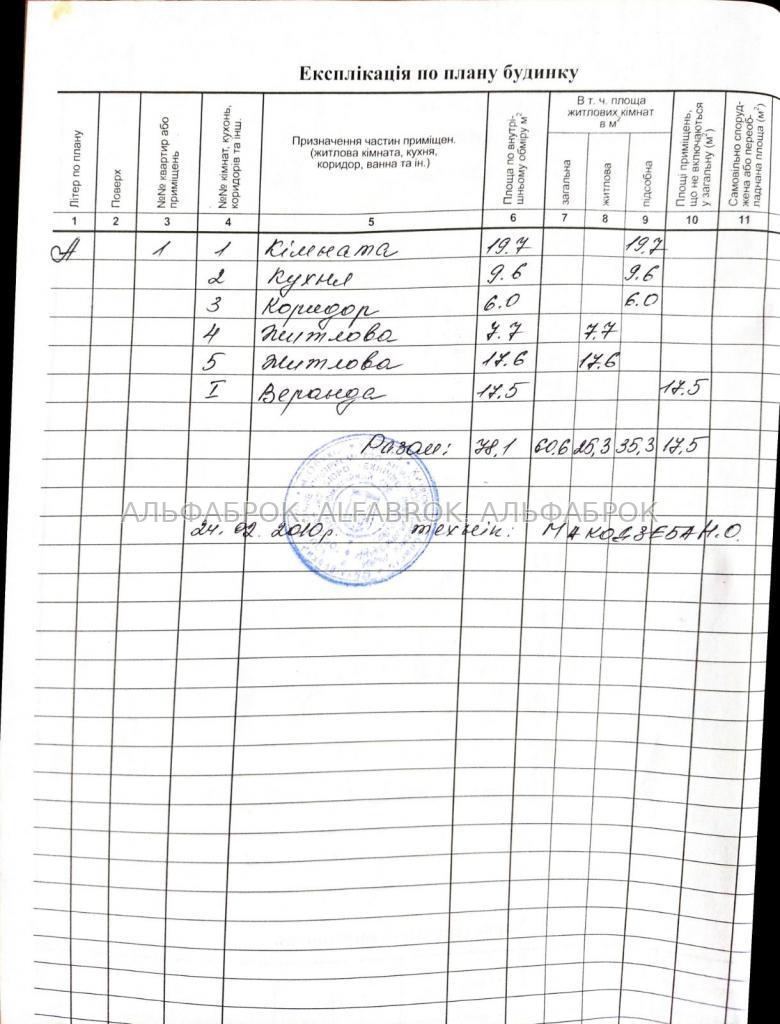 Експлікація по плану будинку
Літер по плану
Поверх
№№ квартир або приміщень
№№ кімнат, кухонь, коридорів та інш.
Призначення частин приміщен.
(житлова кімната, кухня,
коридор, ванна та ін.)
Площа по внутрі-
шньому обміру м²
В т. ч. площа
житлових кімнат
в м²
загальна
житлова
підсобна
Площі приміщень,
що не включаються
у загальну (м²)
Самовільно споруд-
жена або переоб-
ладнана площа (м²)
1 2 3 4 5 6 7 8 9 10 11
А 1 1 Кімната 19.7 19.7
2 Кухня 9.6 9.6
3 Коридор 6.0 6.0
4 Житлова 7.7 7.7
5 Житлова 17.6 17.6
I Веранда 17.5 17.5
Разом: 78,1 60.6 25,3 35,3 17,5
АЛЬФАБРОК ALFABROK АЛЬФАБРОК
24.02.2010р. технік: МАКОДЗЕБА Н.О.